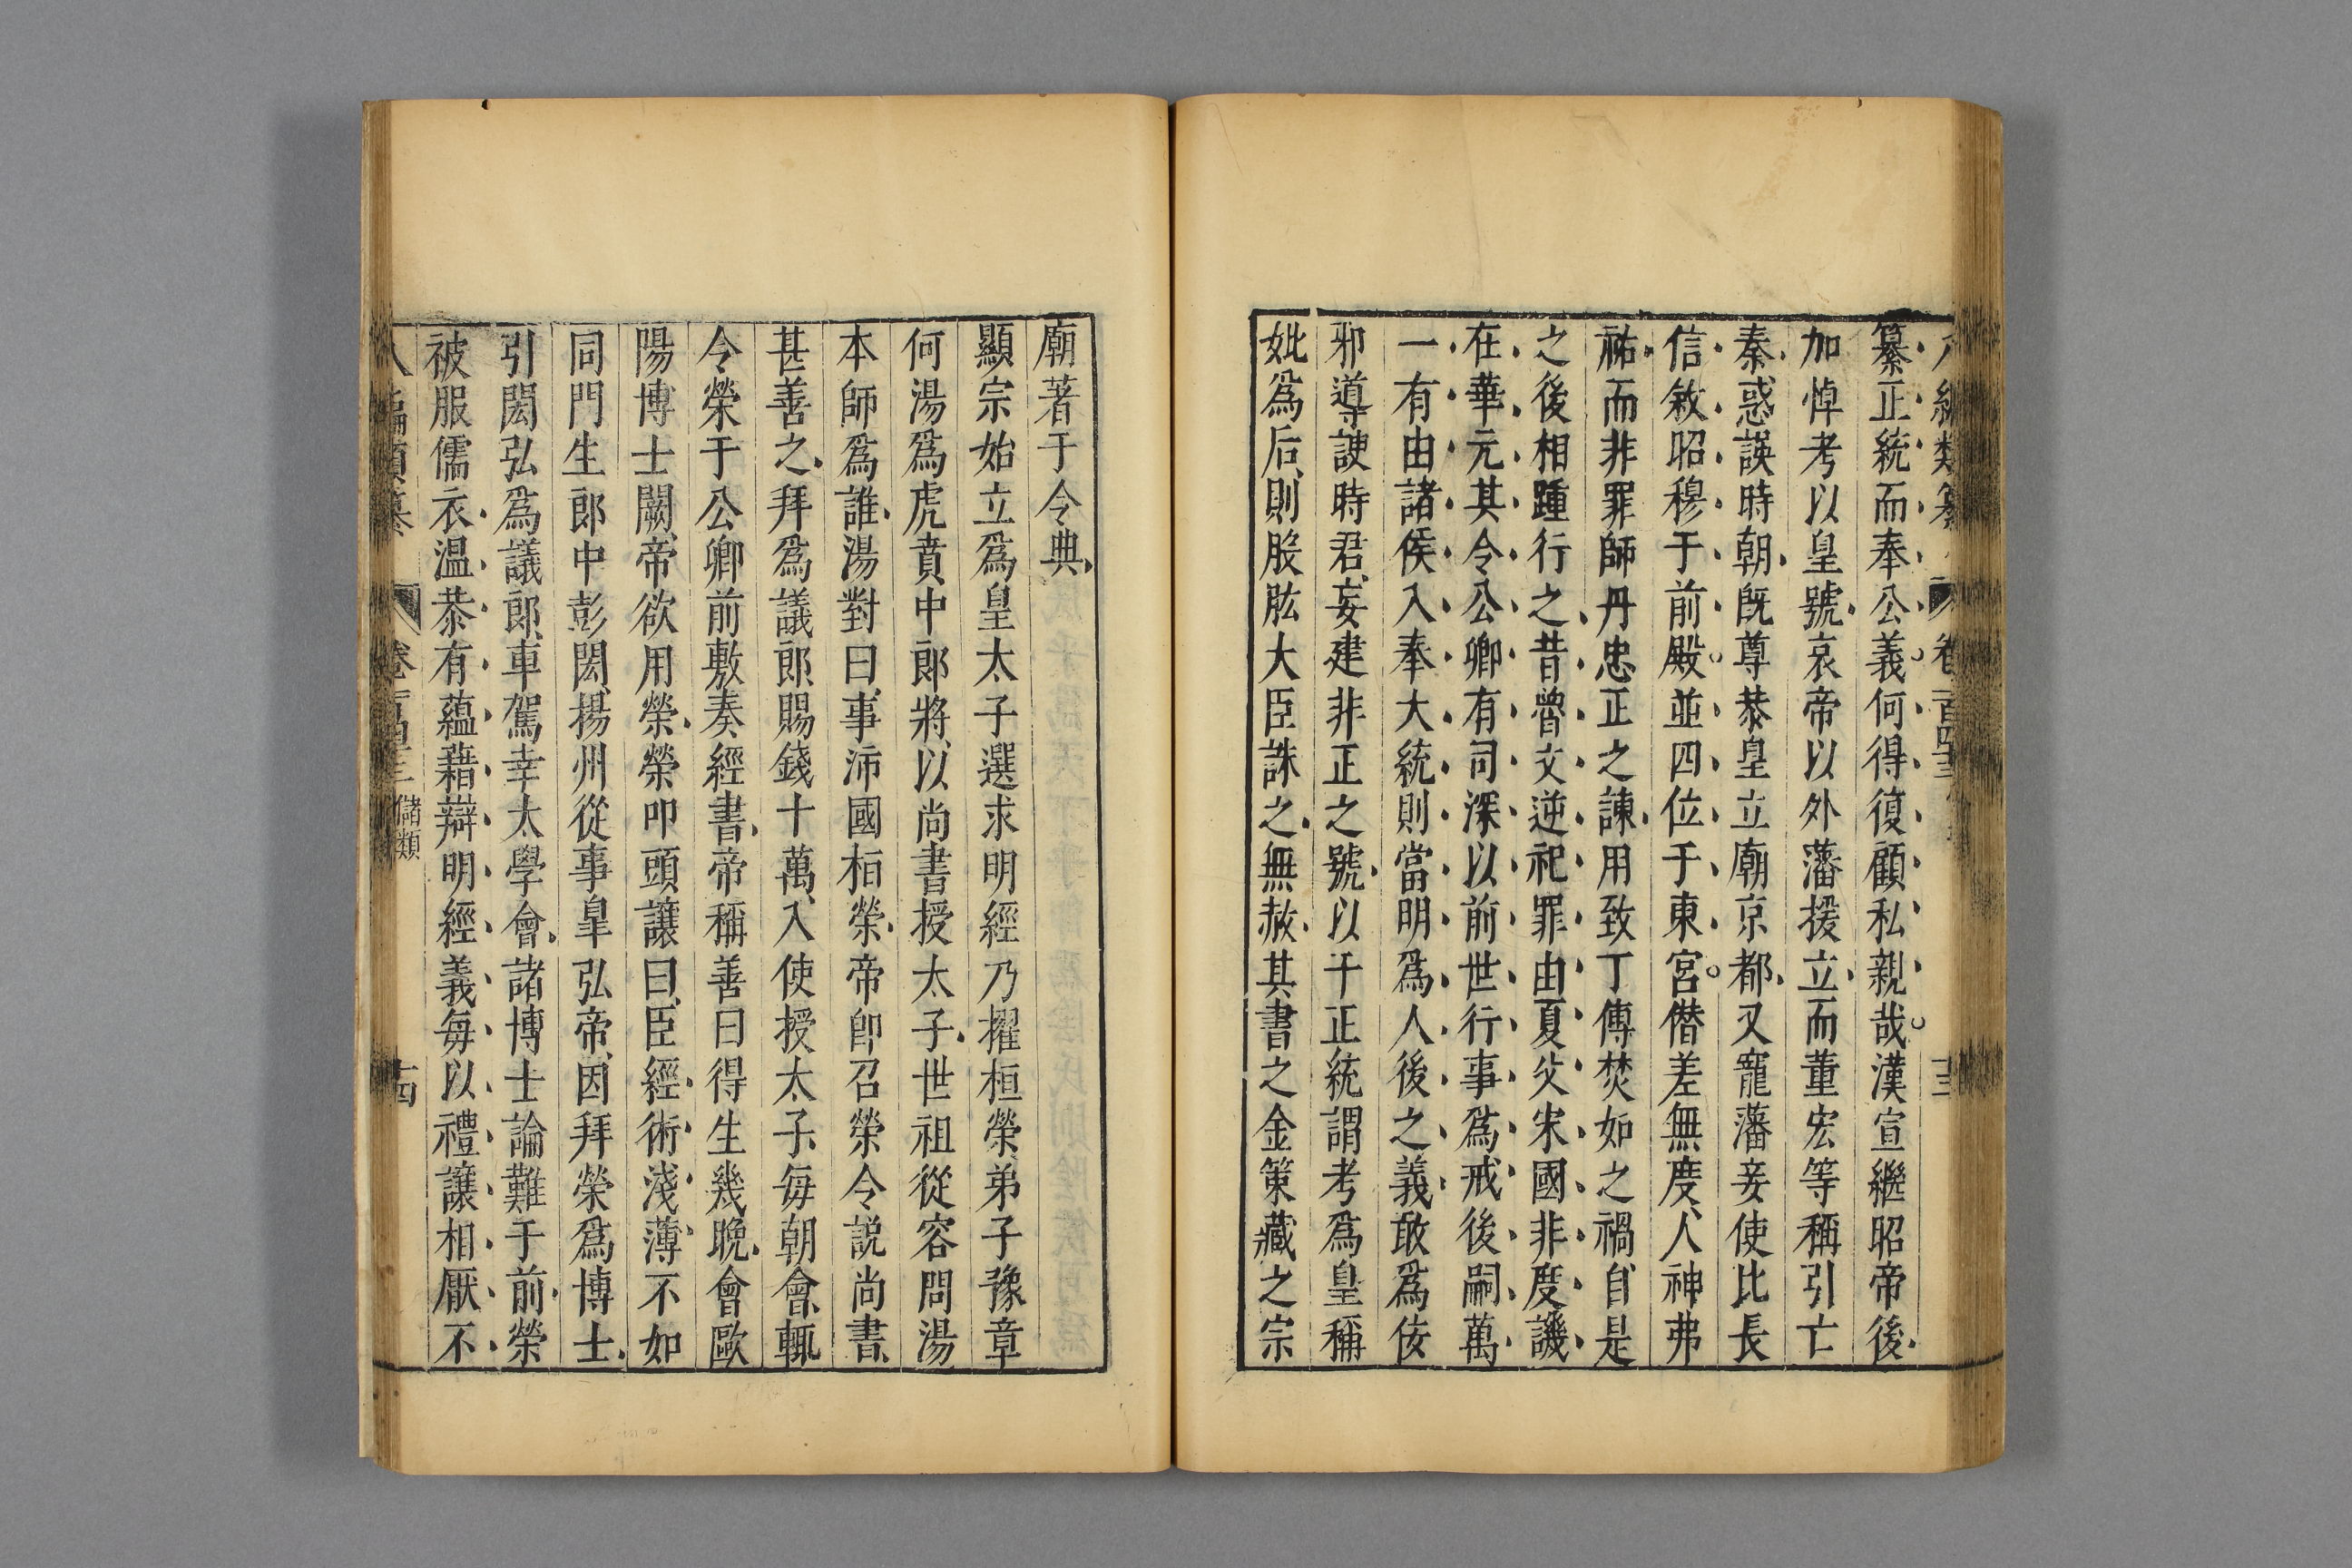 纂正統而奉公義何得復顧私親哉漢宣繼昭帝後
加悼考以皇號哀帝以外藩援立而董宏等稱引亡
秦惑誤時朝旣尊恭皇立廟京都又寵藩妾使比長
信敘昭穆于前殿並四位于東宮僭差無度人神弗
祐而非罪師丹忠正之諫用致丁傅焚如之禍自是
之後相踵行之昔魯文逆祀罪由夏父宋國非度譏
在華元其令公卿有司深以前世行事爲戒後嗣萬
一有由諸侯入奉大統則當明爲人後之義敢爲佞
邪導諛時君妄建非正之號以干正統謂考爲皇稱
妣爲后則股肱大臣誅之無赦其書之金策藏之宗
廟著于令典
顯宗始立爲皇太子選求明經乃擢桓榮弟子豫章
何湯爲虎賁中郎將以尚書授太子世祖從容問湯
本師爲誰湯對曰事沛國桓榮帝卽召榮令説尚書
甚善之拜爲議郎賜錢十萬入使授太子每朝會輒
令榮于公卿前敷奏經書帝稱善曰得生幾晚會歐
陽博士闕帝欲用榮榮叩頭讓曰臣經術淺薄不如
同門生郎中彭閎揚州從事臯弘帝因拜榮爲博士
引閎弘爲議郎車駕幸太學會諸博士論難于前榮
被服儒衣温恭有蘊藉辯明經義每以禮讓相厭不
卷一百四十三 儲類 十四